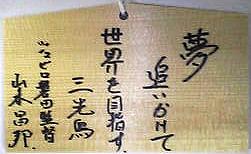 夢
追いかけて
世界を目指す
三光鳥
ジュビロ磐田監督
山本昌邦